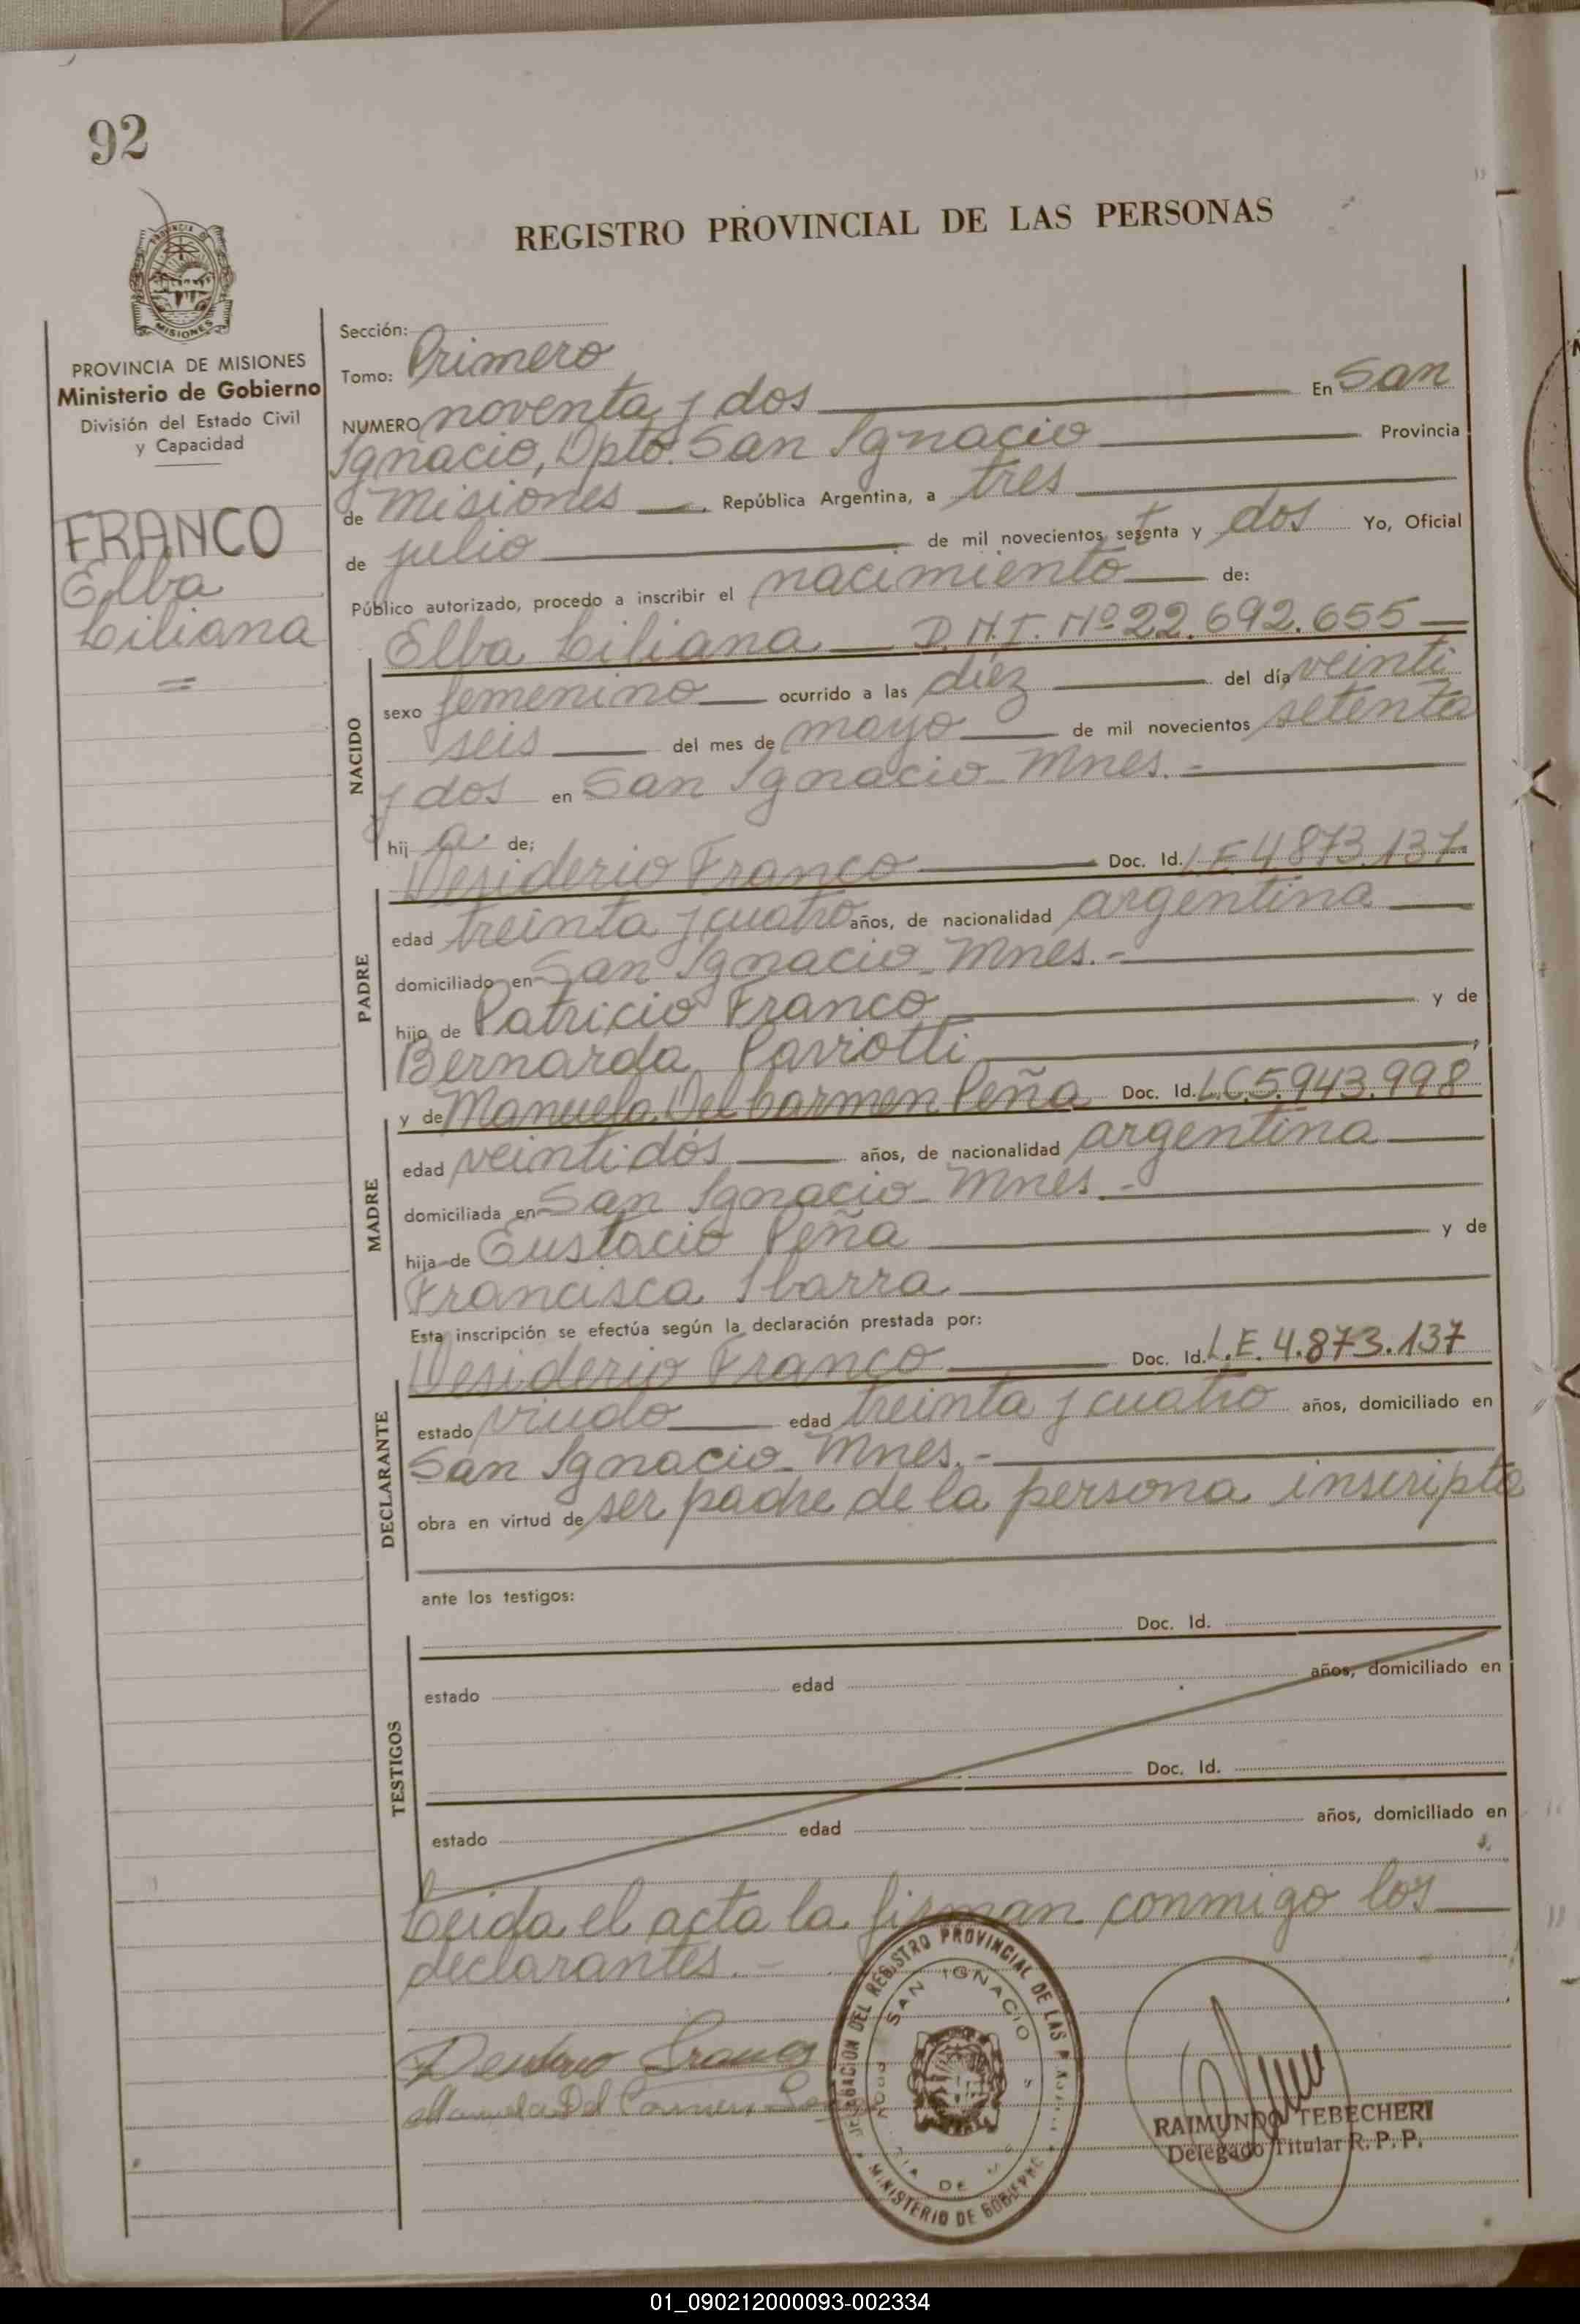 92
REGISTRO PROVINCIAL DE LAS PERSONAS
PROVINCIA DE MISIONES
Ministerio de Gobierno
División del Estado Civil
y Capacidad
FRANCO
Elba
Liliana
Sección:
Tomo: Primero
NUMERO noventa y dos En San
Ignacio, Dpto. San Ignacio Provincia
de Misiones República Argentina, a tres
de julio de mil novecientos setenta y dos Yo, Oficial
Público autorizado, procedo a inscribir el nacimiento de:
Elba Liliana D.N.I. Nº 22.692.655
NACIDO
sexo femenino ocurrido a las diez del día veinti
seis del mes de mayo de mil novecientos setenta
y dos en San Ignacio - Mnes. -
hij a de;
Desiderio Franco Doc. Id. L.E. 4.873.137
PADRE
edad treinta y cuatro años, de nacionalidad argentina
domiciliado en San Ignacio - Mnes. -
hijo de Patricio Franco y de
Bernarda
y de Manuela Del Carmen Peña Doc. Id. L.C. 5.943.998
MADRE
edad veintidós años, de nacionalidad argentina
domiciliada en San Ignacio - Mnes. -
hija de Eustacio Peña y de
Francisca Ibarra
Esta inscripción se efectúa según la declaración prestada por:
Desiderio Franco Doc. Id. L.E. 4.873.137
DECLARANTE
estado viudo edad treinta y cuatro años, domiciliado en
San Ignacio - Mnes. -
obra en virtud de ser padre de la persona inscripta
ante los testigos:
Doc. Id.
TESTIGOS
estado edad años, domiciliado en
Doc. Id.
estado edad años, domiciliado en
Leida el acta la firman conmigo los
declarantes. -
Franco
Manuela Del Carmen
DELEGACION DEL REGISTRO PROVINCIAL DE LAS
SAN IGNACIO
MINISTERIO DE GOBIERNO
RAIMUNDO TEBECHERI
Delegado Titular R. P. P.
01_090212000093-002334